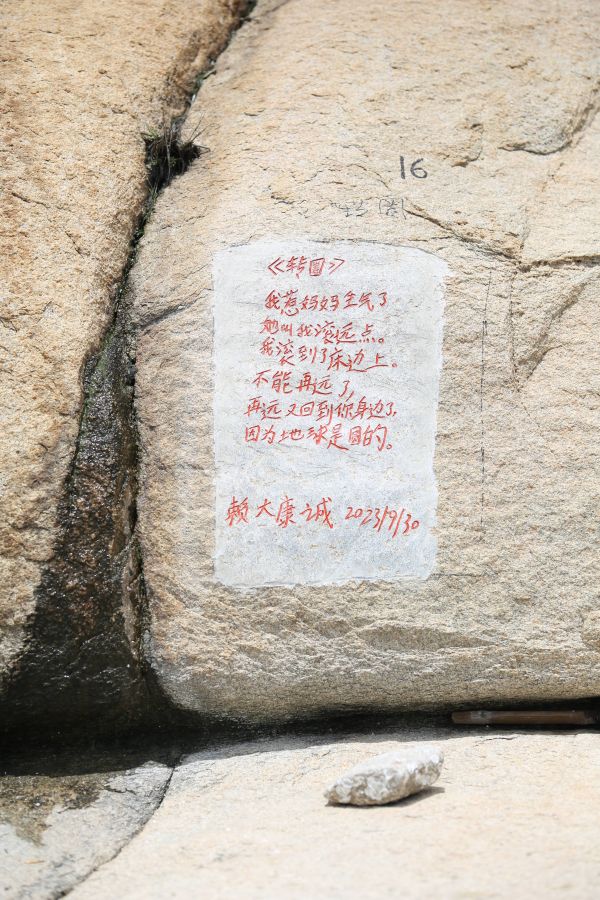 16
转圈
《转圆》
我惹妈妈生气了
她叫我滚远点。
我滚到了床边上。
不能再远了，
再远又回到你身边了，
因为地球是圆的。
赖大康诚 2023/9/30